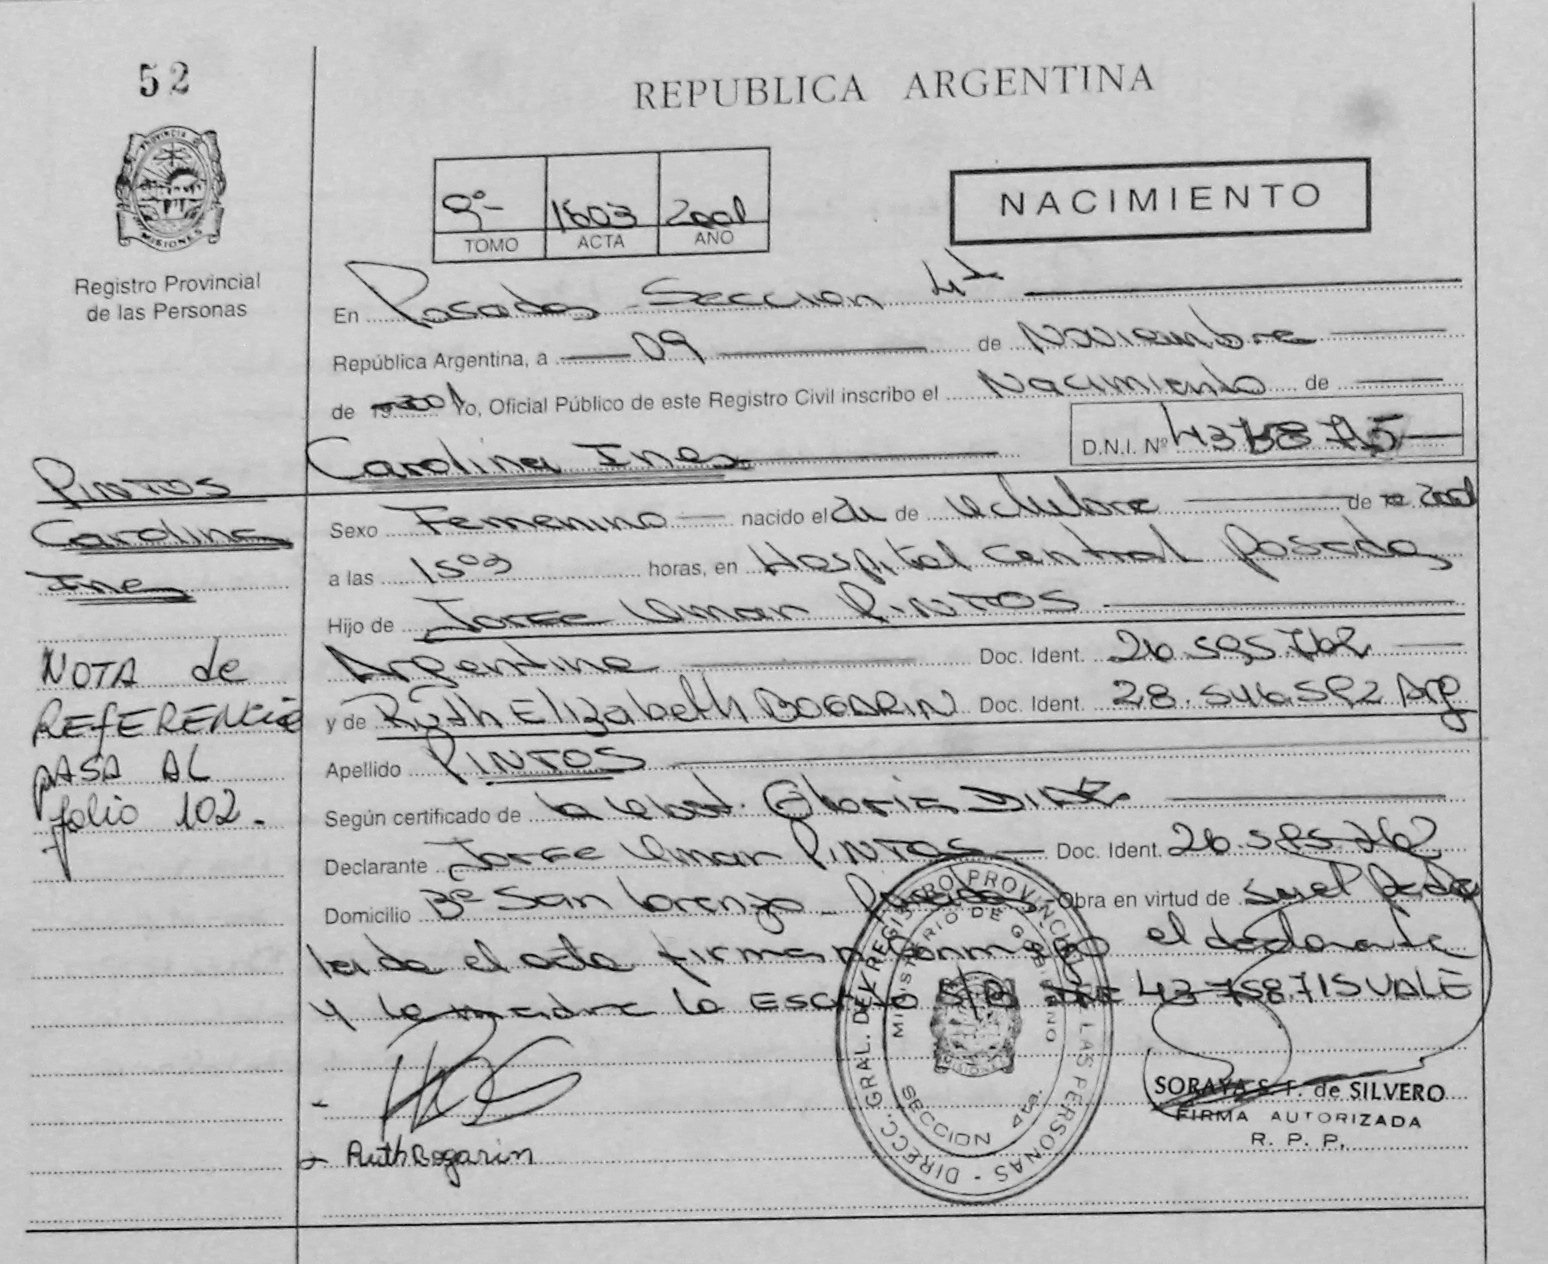 52
REPUBLICA ARGENTINA
PROVINCIA DE MISIONES
Registro Provincial
de las Personas
9º 1603 2001
TOMO ACTA AÑO
NACIMIENTO
En Posadas - Seccion 4ta
República Argentina, a 09 de Noviembre
de 2001 Yo, Oficial Público de este Registro Civil inscribo el Nacimiento de
D.N.I. Nº
Carolina Ines
PINTOS
Carolina
Ines
Sexo Femenino nacido el de Octubre de 2001
a las 15 03 horas, en Hospital Central Posadas
Hijo de Jorge Omar PINTOS
Argentino Doc. Ident. 26.595.762
y de Ruth Elizabeth BOGARIN Doc. Ident. 28.546.592 Arg
Apellido PINTOS
Según certificado de la Obst. Gloria DIAZ
Declarante Jorge Omar PINTOS Doc. Ident. 26.595.762
Domicilio Bº San Lorenzo - Posadas Obra en virtud de Padre
leida el acta firman conmigo el declarante
y la madre lo Escrito S/B 43.758.715 VALE
NOTA de
REFERENCIA
PASA AL
folio 102.
Ruth Bogarin
DIRECC. GRAL. DEL REGISTRO PROVINCIAL DE LAS PERSONAS
MINISTERIO DE GOBIERNO
MISIONES
SECCION 4ta.
SORAYA S. F. de SILVERO
FIRMA AUTORIZADA
R. P. P.